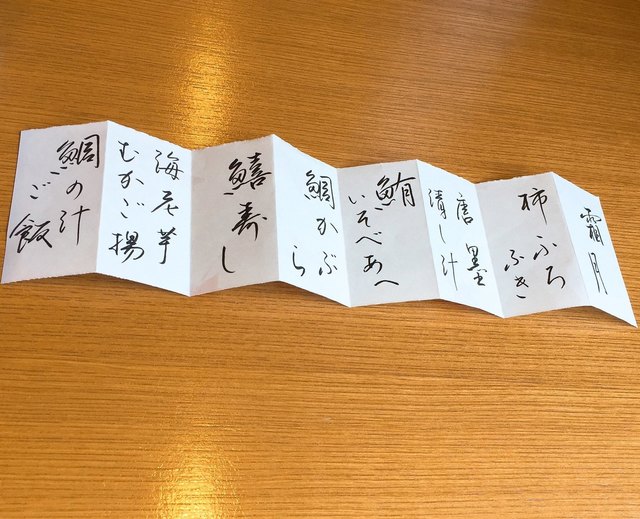 霜月
柿ふろ
ふき
唐墨
清し汁
鮪
いそべあへ
鯛かぶ
ら
鱚寿し
海老芋
むかご揚
鯛の汁
ご飯